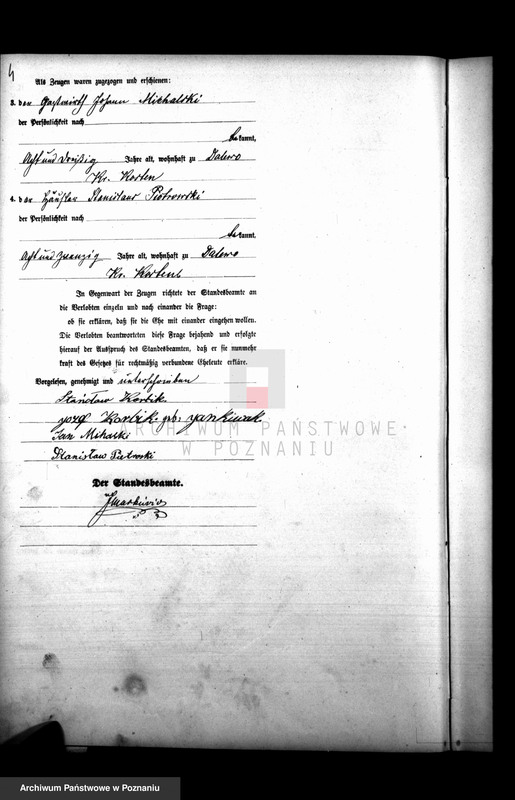 4
Als Zeugen waren zugezogen und erschienen:
3. der Gastwirth Johann Michalski
der Persönlichkeit nach
bekannt,
Acht und dreißig Jahre alt, wohnhaft zu Dalewo
Kr. Kosten
4. der Häusler Stanislaus Piotrowski
der Persönlichkeit nach
bekannt,
Acht und zwanzig Jahre alt, wohnhaft zu Dalewo
Kr. Kosten
In Gegenwart der Zeugen richtete der Standesbeamte an
die Verlobten einzeln und nach einander die Frage:
ob sie erklären, daß sie die Ehe mit einander eingehen wollen.
Die Verlobten beantworteten diese Frage bejahend und erfolgte
hierauf der Ausspruch des Standesbeamten, daß er sie nunmehr
kraft des Gesetzes für rechtmäßig verbundene Eheleute erkläre.
Vorgelesen, genehmigt und unterschrieben
Stanisław Korbik
Korbik geb.
Jan Mihalski
Stanisław Piotroski
ARCHIWUM PAŃSTWOWE
W POZNANIU
Der Standesbeamte.
Archiwum Państwowe w Poznaniu